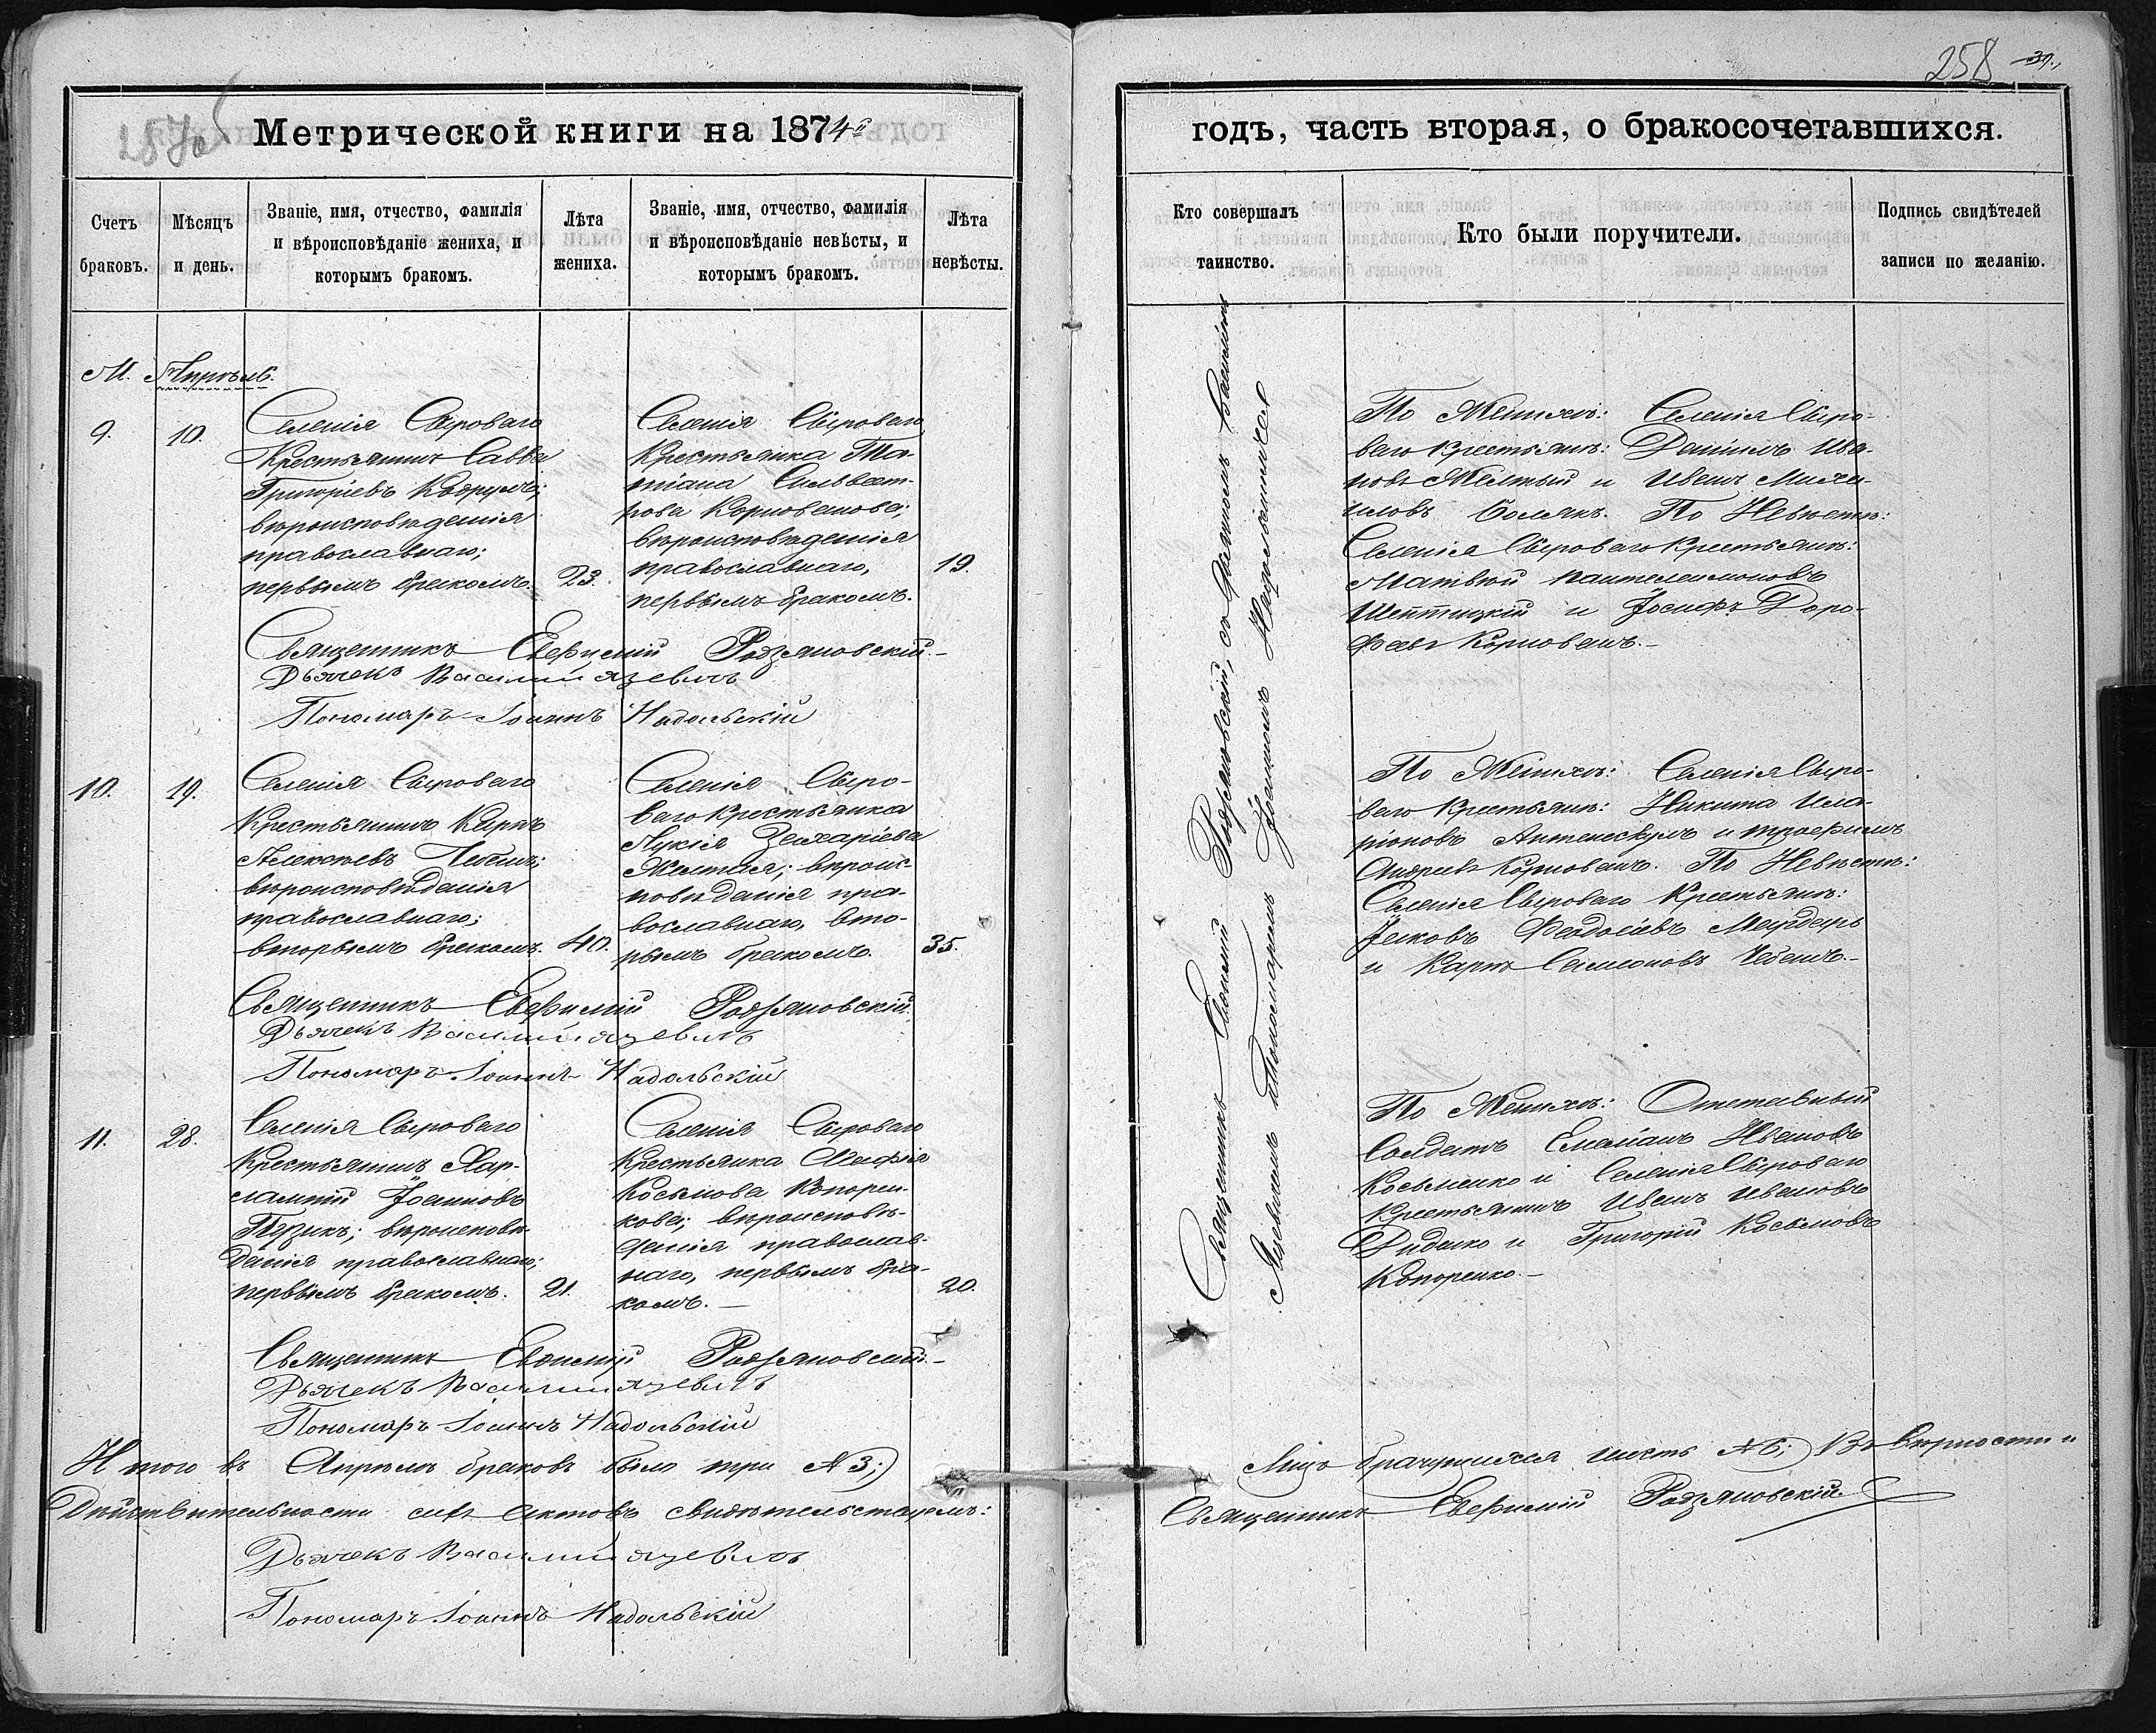 257об
Метрической книги на 1874й
Счетъ браковъ.
Мѣсяцъ и день.
Званіе, имя, отчество, фамилія и вѣроисповѣданіе жениха, и которымъ бракомъ.
Лѣта жениха.
Званіе, имя, отчество, фамилія и вѣроисповѣданіе невѣсты, и которымъ бракомъ.
Лѣта невѣсты.
М. Апрѣль.
9.
10.
Селенія Сыроваго
Крестьянинъ Савва
Григоріевъ Кодрулъ;
вѣроисповѣденія
православнаго;
первымъ бракомъ.
23.
Селенія Сыроваго
Крестьянка Та-
тіана Сильвест-
рова Корнованова;
вѣроисповѣденія
православнаго,
первымъ бракомъ.
19.
Священникъ Евфимій Родзяновскій.-
Дьячекъ Василій Язевичъ
Пономарь Іоаннъ Надольскій
10.
19.
Селенія Сыроваго
Крестьянинъ Карпъ
Алексѣевъ Чебанъ;
вѣроисповѣданія
православнаго;
вторымъ бракомъ.
40.
Селенія Сыро-
ваго Крестьянка
Лукія Захаріева
Желтая; вѣроис-
повѣданія пра-
вославнаго, вто-
рымъ бракомъ.
35.
Священникъ Евфимій Родзяновскій.
Дьячекъ Василій Язевичъ
Пономарь Іоаннъ Надольскій
11.
28.
Селенія Сыроваго
Крестьянинъ Хар-
лампій Іоанновъ
Пузикъ; вѣроисповѣ-
данія православнаго;
первымъ бракомъ.
21.
Селенія Сыроваго
Крестьянка
Косьмова Копорен-
кова; вѣроисповѣ-
денія православ-
наго, первымъ бра-
комъ.-
20.
Священникъ Евфимій Родзяновскій.-
Дьячекъ Василій Язевичъ
Пономарь Іоаннъ Надольскій
Итого въ Апрѣлѣ браковъ было три №3;)
Дѣйствительности сихъ актовъ свидѣтельствуемъ:
Дьячекъ Василій Язевичъ
Пономарь Іоаннъ Надольскій
258
37.
годъ, часть вторая, о бракосочетавшихся.
Кто совершалъ таинство.
Кто были поручители.
Подпись свидѣтелей записи по желанію.
Священникъ Евфимій Родзяновскій, со Дьячкомъ Василіемъ
Язевичемъ и Пономаремъ Іоанномъ Надольскимъ
По Женихѣ: Селенія Сыро-
ваго Крестьяне: Даніилъ Ива-
новъ Желтый и Иванъ Миха-
иловъ Болякъ. По Невѣстѣ:
Селенія Сыроваго Крестьяне:
Матвѣй Пантелеимоновъ
Шептицкій и Іосифъ Доро-
феевъ Корнованъ.-
По Женихѣ: Селенія Сыро-
ваго Крестьяне: Никита Ила-
ріоновъ и Трофимъ
Андреевъ Корнованъ. По Невѣстѣ:
Селенія Сыроваго Крестьяне:
Іаковъ Феодосіевъ Мардарь
и Карпъ Симеоновъ Чебанъ.-
По Женихѣ: Отставный
Солдатъ Емеліанъ Ивановъ
Косьменко и Селенія Сыроваго
Крестьянинъ Иванъ Ивановъ
Диденко и Григорій Косьмовъ
Копоренко.-
Лицъ брачущихся шесть №6;) Въ вѣрности и
Священникъ Евфимій Родзяновскій